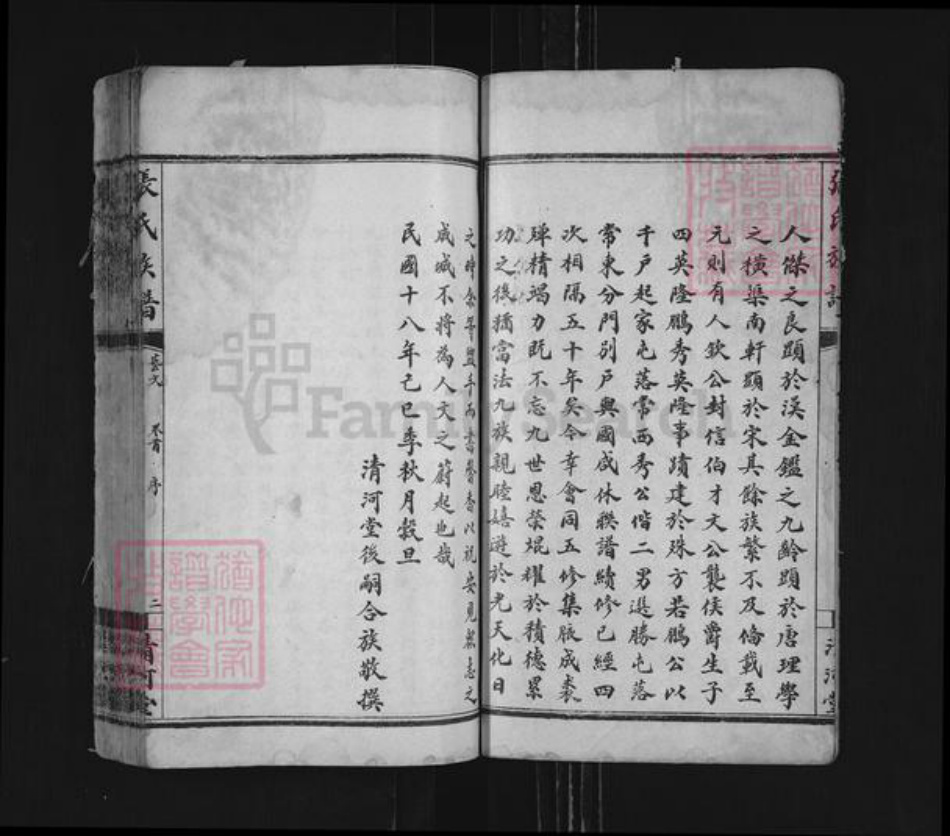 人傑之良顕於漢金鑑之九齡顕於唐理學
之橫渠南軒顕於宋其餘族繁不及僃載至
元則有人欽公封信伯才文公襲侯爵生子
四英隆鵬秀英隆事蹟建於殊方若鵬公以
千戸起家屯落常西秀公偕二男選勝屯落
常東分門別戸與國咸休聨譜續修已經四
次相隔五十年矣今幸會同五修集脤成裘
殫精竭力既不忘九世恩榮焜耀於積德累
功之後猶當法九族親睦嬉遊於光天化日
之時余年 香以祝安見衆志之
成城不將為人文之蔚起也哉
民國十八年己巳季秋月穀旦
清河堂後嗣合族敬撰
張氏族譜
藝文 卷首 序
二
清河堂
FamilySearch